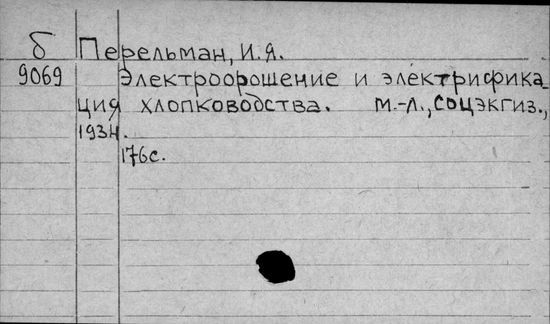 б Перельман, И.Я.
9069 Электроорошение и электрифика-
ция хлопководства. М.-Л., Соцэкгиз.,
1934.
176с.